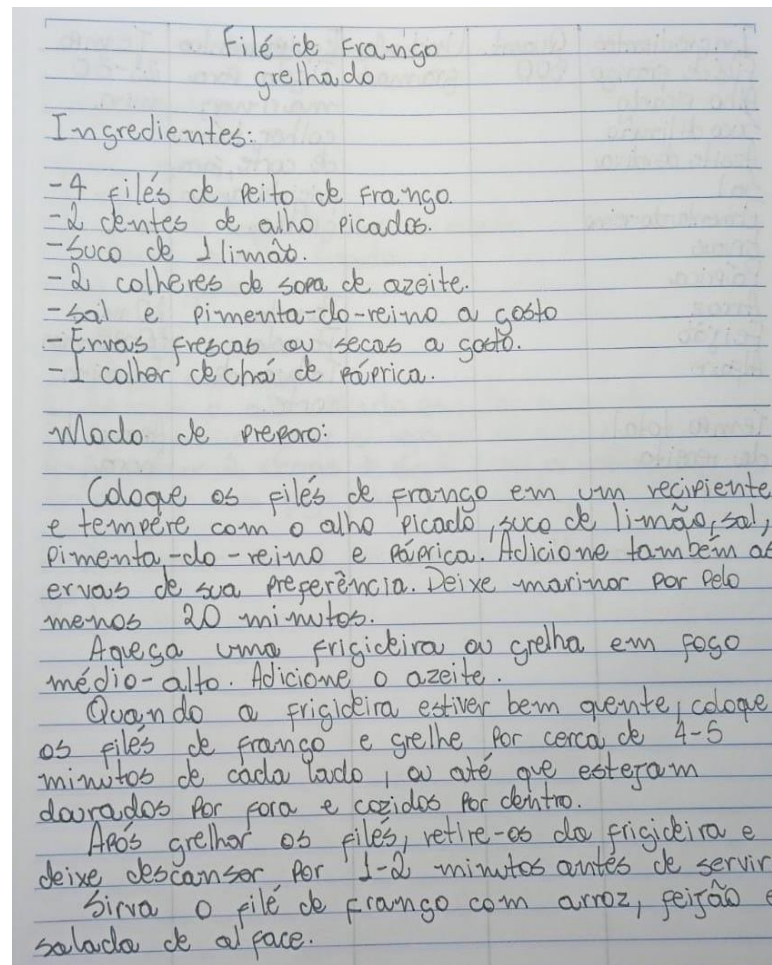 Filé de Frango
grelhado
Ingredientes:
-4 filés de peito de frango.
-2 dentes de alho picados.
-Suco de 1 limão.
-2 colheres de sopa de azeite.
-sal e pimenta-do-reino a gosto
-Ervas frescas ou secas a gosto.
-1 colher de chá de páprica.
Modo de preparo:
Coloque os filés de frango em um recipiente
e tempére com o alho picado, suco de limão, sal,
pimenta-do-reino e páprica. Adicione também as
ervas de sua preferência. Deixe marinar por pelo
menos 20 minutos.
Aqueça uma frigideira ou grelha em fogo
médio-alto. Adicione o azeite.
Quando a frigideira estiver bem quente, coloque
os filés de frango e grelhe por cerca de 4-5
minutos de cada lado, ou até que estejam
dourados por fora e cozidos por dentro.
Após grelhar os filés, retire-os da frigideira e
deixe descansar por 1-2 minutos antes de servir
Sirva o filé de frango com arroz, feijão e
salada de alface.